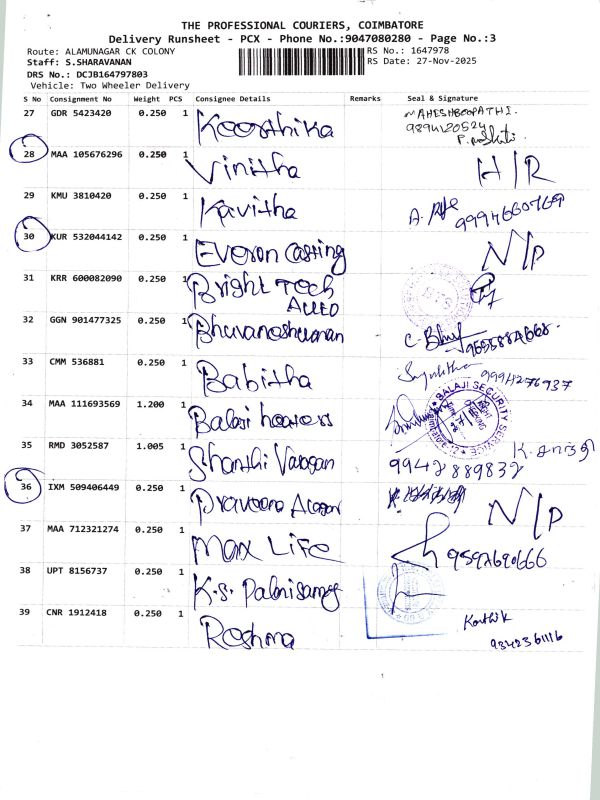 THE PROFESSIONAL COURIERS, COIMBATORE
Delivery Runsheet - PCX - Phone No.:9047080280 - Page No.:3
Route: ALAMUNAGAR CK COLONY
RS No.: 1647978
Staff: S.SHARAVANAN
RS Date: 27-Nov-2025
DRS No.: DCJB164797803
Vehicle: Two Wheeler Delivery
S No Consignment No Weight PCS Consignee Details Remarks Seal & Signature
27 GDR 5423420 0.250 1 Keerthika MAHESHBOOPATHI.
9894120524
28 MAA 105676296 0.250 1 Vinitha H/R
29 KMU 3810420 0.250 1 Kavitha
30 KUR 532044142 0.250 1 Everon Casting N/P
31 KRR 600082090 0.250 1 Bright Tech
Auto
32 GGN 901477325 0.250 1 Bhuvaneshwaran
33 CMM 536881 0.250 1 Babitha 9994276937
34 MAA 111693569 1.200 1 Balaji BALAJI SECURITY SERVICE
35 RMD 3052587 1.005 1 Shanthi K. சாந்தி
9942889832
36 IXM 509406449 0.250 1 Praveena N/P
37 MAA 712321274 0.250 1 Max Life 9597690666
38 UPT 8156737 0.250 1 K.S. Palanisamy
39 CNR 1912418 0.250 1 Reshma Karthik
9842361116